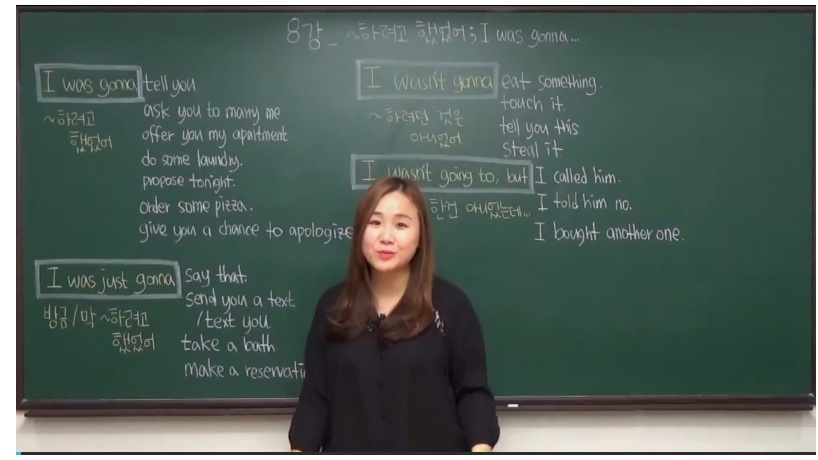 8강_ ~하려고 했었어; I was gonna...
I was gonna tell you
~하려고
했었어
ask you to marry me
offer you my apartment
do some laundry.
propose tonight.
order some pizza.
give you a chance to apologize
I was just gonna say that.
방금/막 ~하려고
했었어
send you a text
/text you
take a bath
make a
I wasn't gonna eat something.
~하려던 것은
아니었어
touch it
tell you this
steal it
I wasn't going to, but I called him.
한건 아니었는데...
I told him no.
I bought another one.